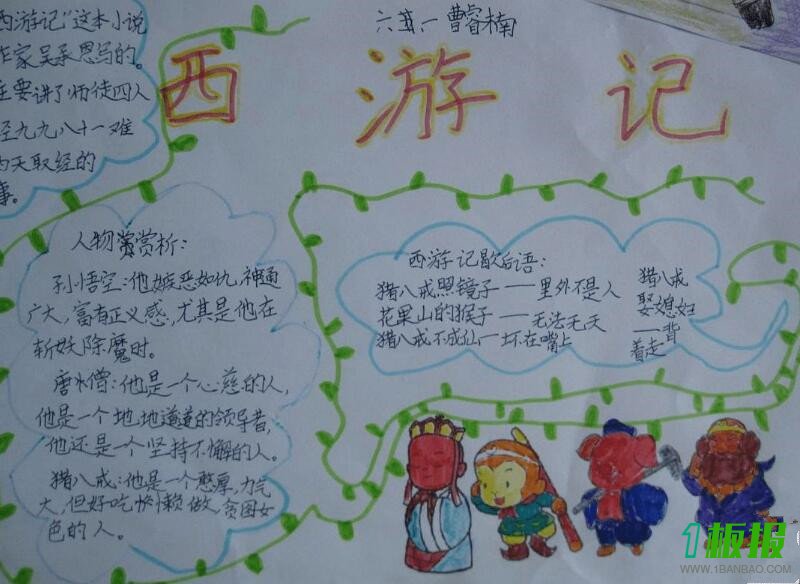 西游记"这本小说
作家吴承恩写的。
主要讲了师徒四人
经九九八十一难
西天取经的
事。
曹睿楠
西游记
人物赏析：
孙悟空：他嫉恶如仇，神通
广大，富有正义感，尤其是他在
斩妖除魔时。
唐僧：他是一个心慈的人，
他是一个地地道道的领导者，
他还是一个坚持不懈的人。
猎八戒：他是一个憨厚，力气
大，但好吃懒做，贪图女
色的人。
西游记歇后语：
猎八戒照镜子——里外不是人
花果山的猴子——无法无天
猎八戒不成仙—坏在嘴上
猎八戒
娶媳妇
—背
着走
1板报
WWW.1BANBAO.COM